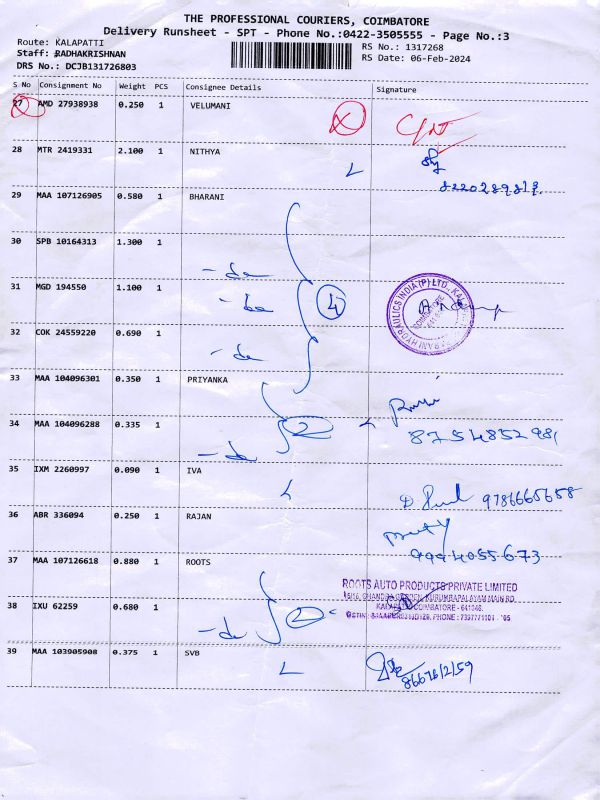 THE PROFESSIONAL COURIERS, COIMBATORE
Delivery Runsheet - SPT - Phone No.:0422-3505555 - Page No.:3
Route: KALAPATTI
RS No.: 1317268
Staff: RADHAKRISHNAN
RS Date: 06-Feb-2024
DRS No.: DCJB131726803
S No Consignment No Weight PCS Consignee Details Signature
27 AMD 27938938 0.250 1 VELUMANI
28 MTR 2419331 2.100 1 NITHYA
29 MAA 107126905 0.580 1 BHARANI
30 SPB 10164313 1.300 1
- do
31 MGD 194550 1.100 1
- do 4
32 COK 24559220 0.690 1
- do
33 MAA 104096301 0.350 1 PRIYANKA
34 MAA 104096288 0.335 1 2
8754852981
- do
35 IXM 2260997 0.090 1 IVA
9786665658
36 ABR 336094 0.250 1 RAJAN
9994055673
37 MAA 107126618 0.880 1 ROOTS
ROOTS AUTO PRODUCTS PRIVATE LIMITED
38 IXU 62259 0.680 1 2
KALAPATTI COIMBATORE - 641048.
- do
39 MAA 103905908 0.375 1 SVB